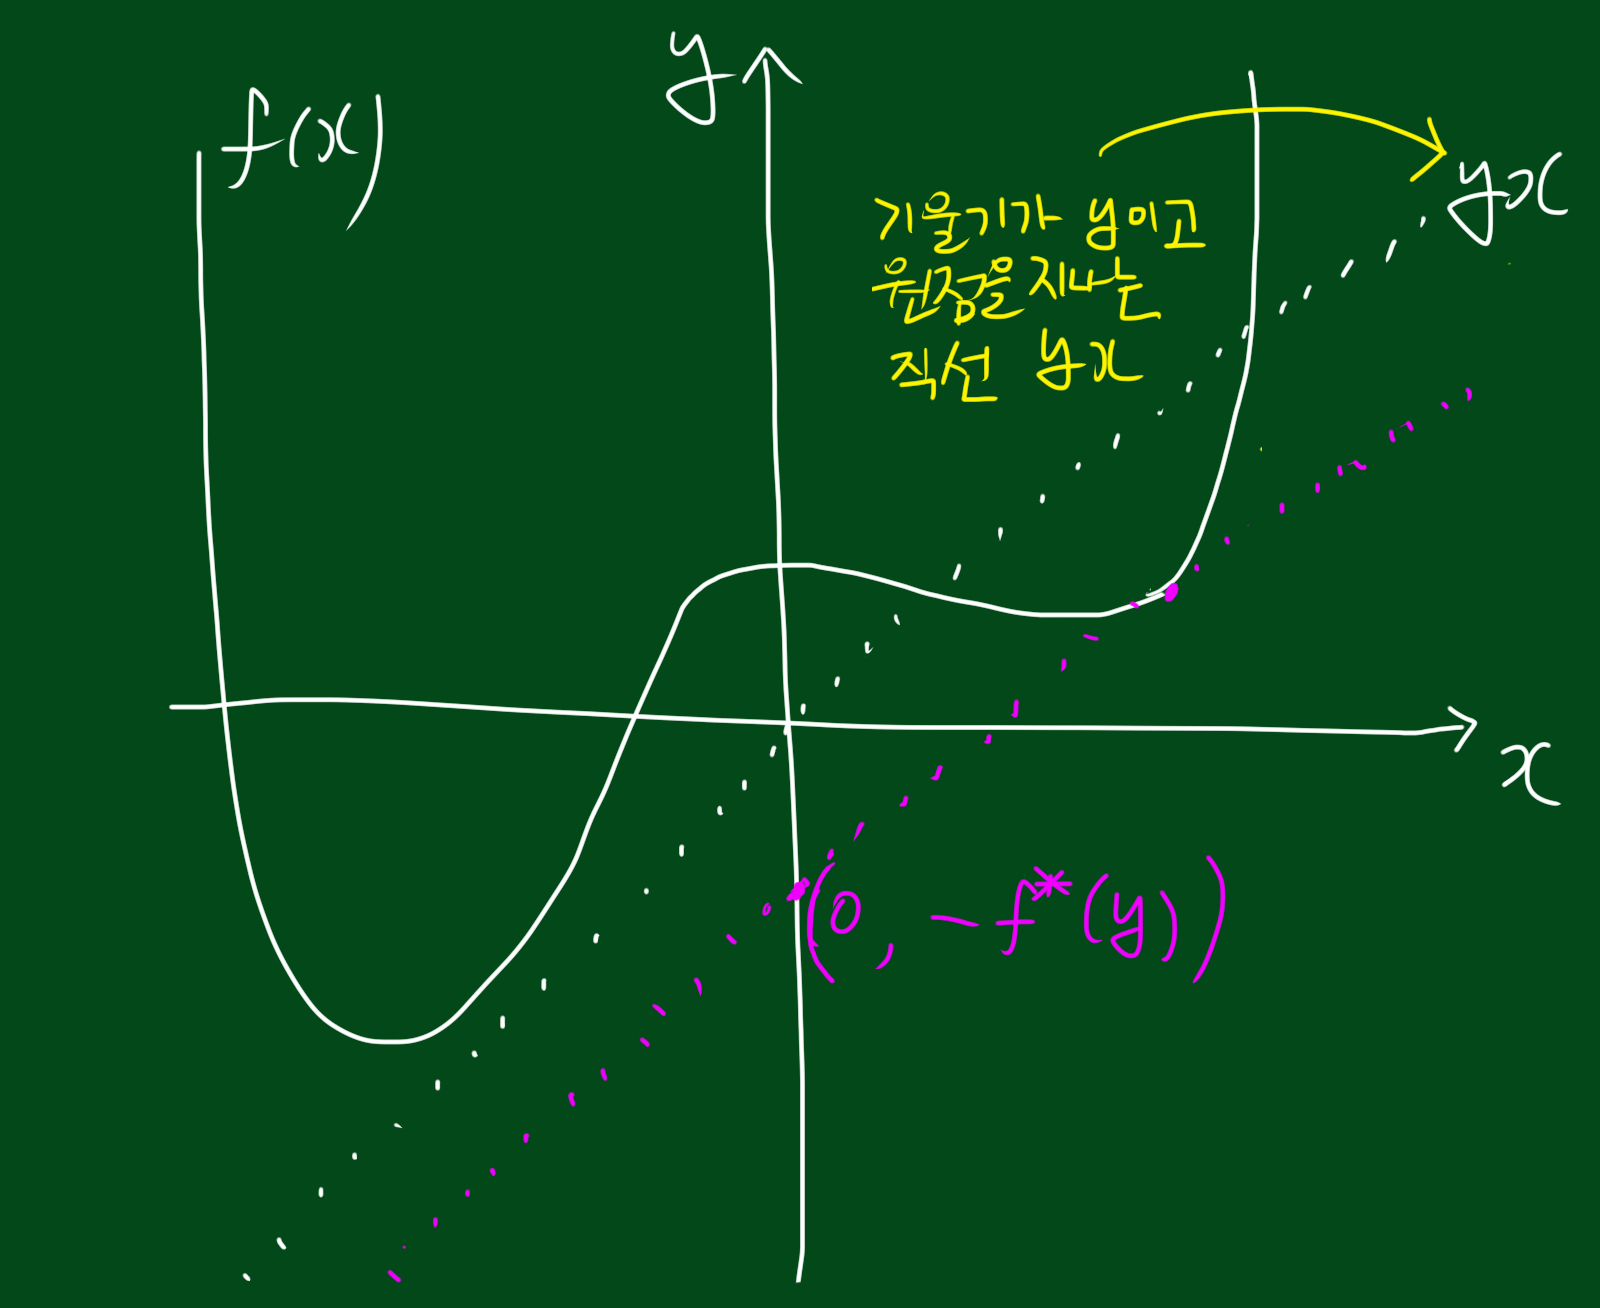 f(x)
y
yx
기울기가 y이고
원점을 지나는
직선 yx
x
(0, -f*(y))